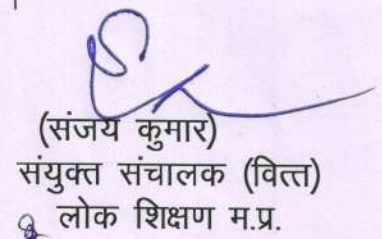 (संजय कुमार)
संयुक्त संचालक (वित्त)
लोक शिक्षण म.प्र.